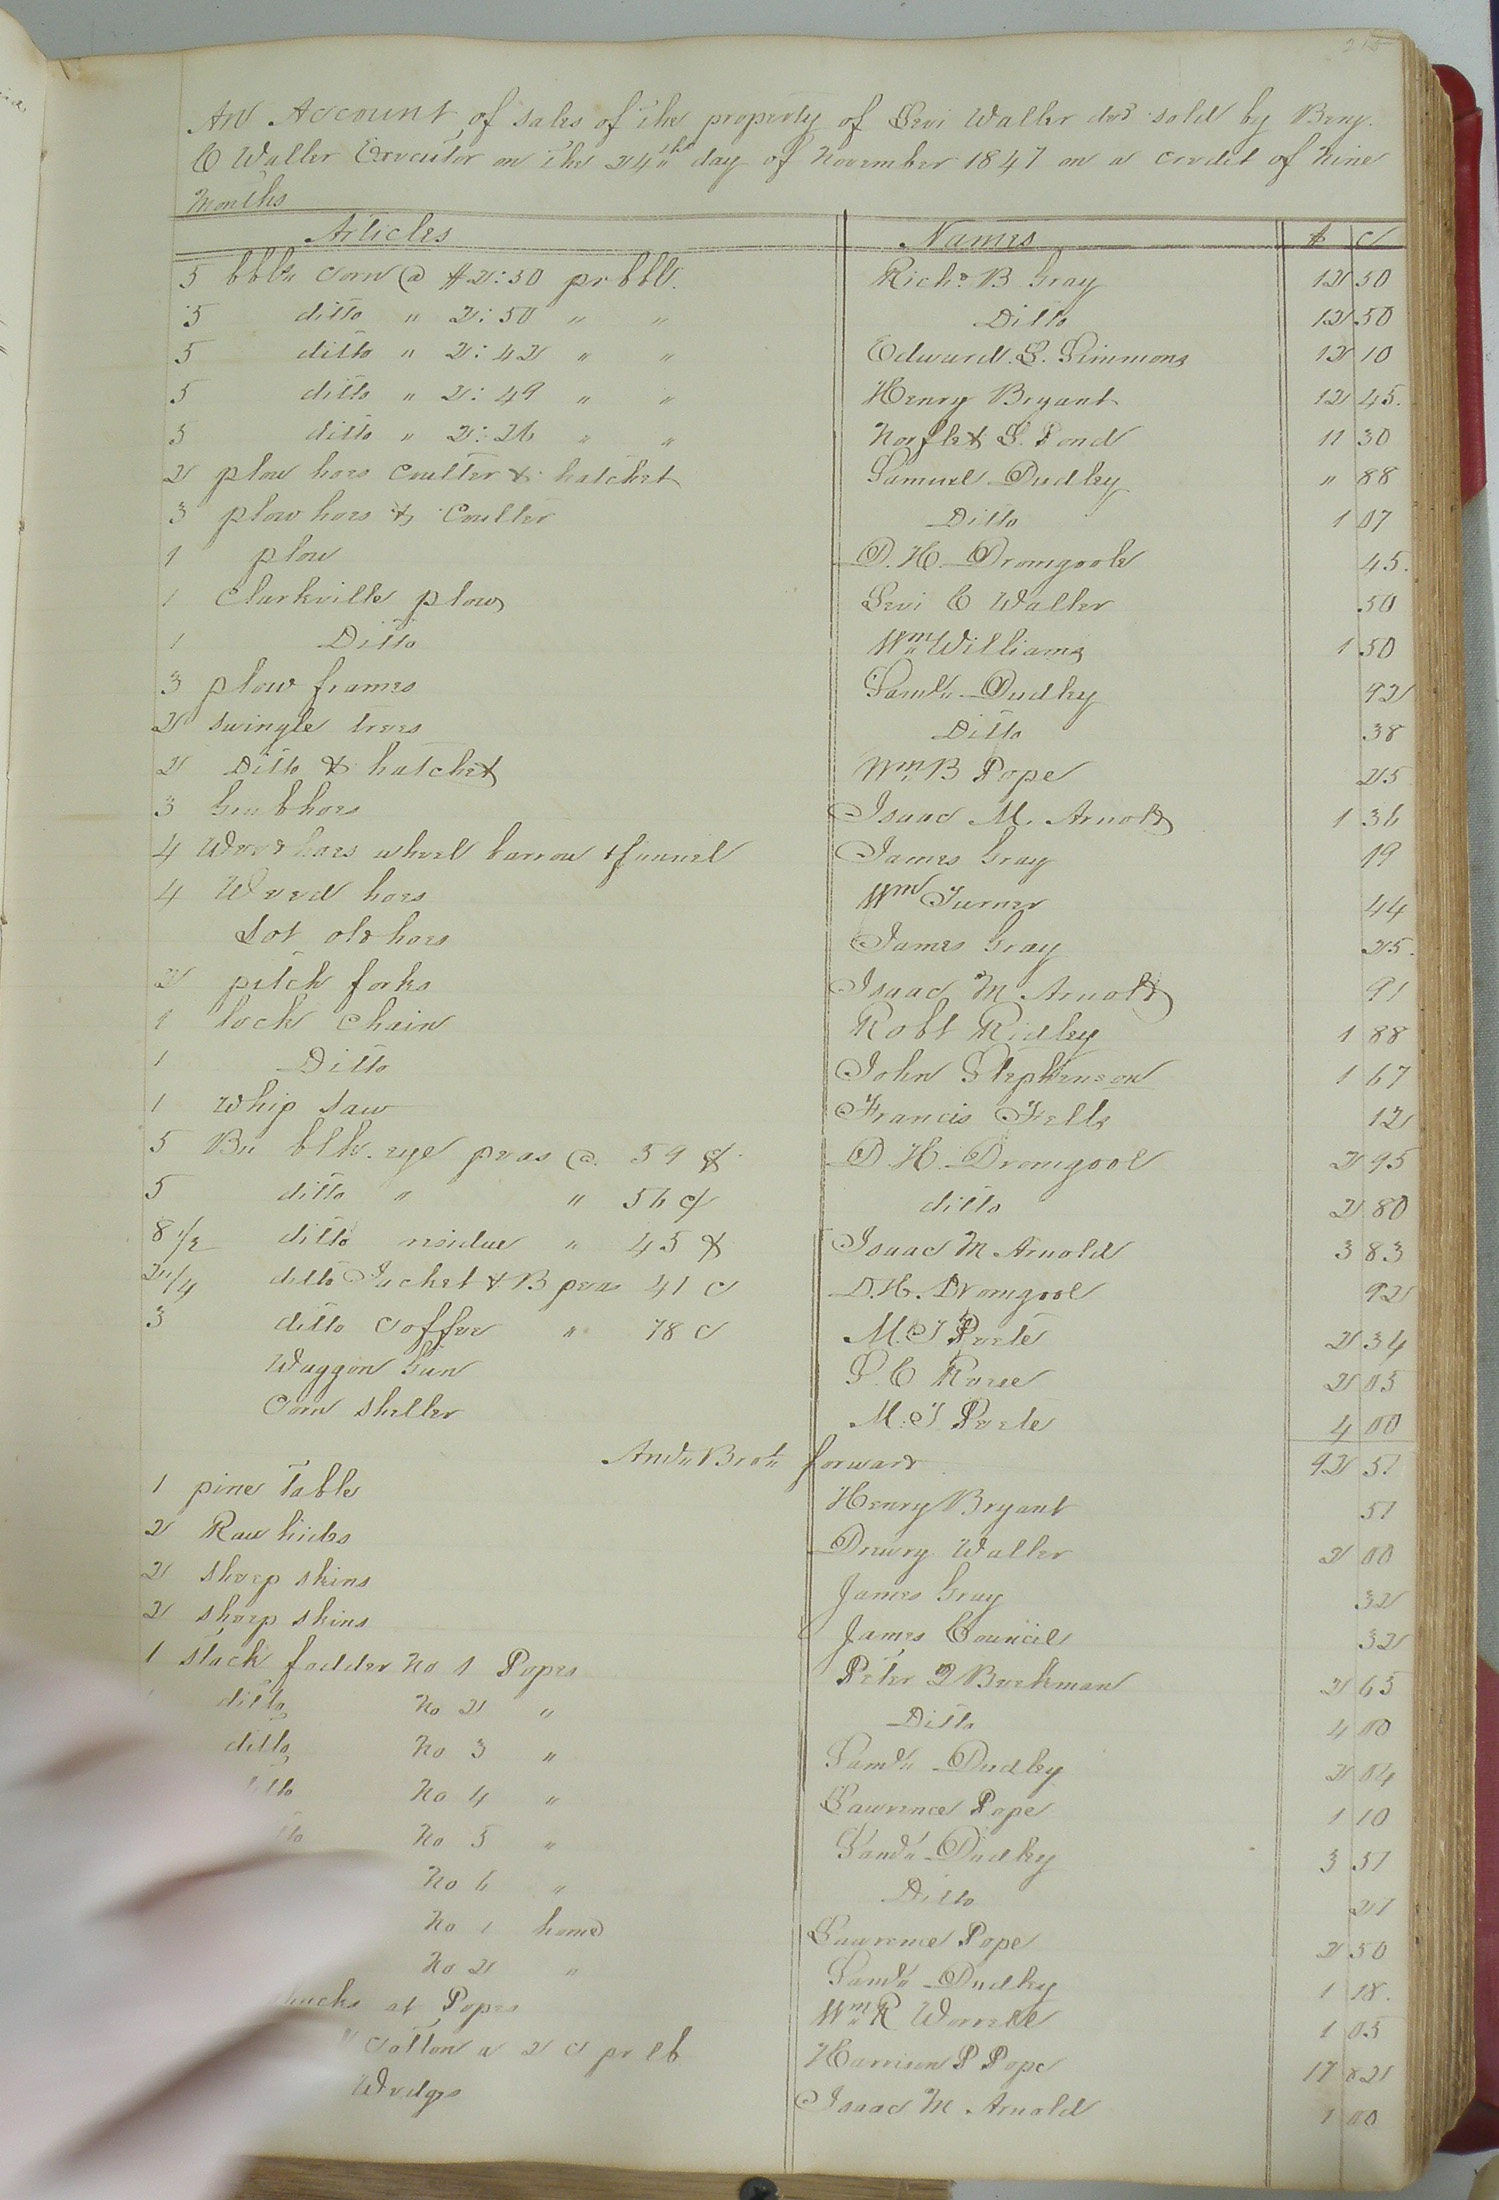 215
An Account of sales of the property of Levi Waller decd sold by Benj.
C Waller Executor on the 24th day of November 1847 on a credit of nine
Months
Articles Names $ c
5 bbls corn @ $2:50 pr bbl. Richd B Gray 12 50
5 ditto " 2:50 " " Ditto 12 50
5 ditto " 2:42 " " Edward. L. Simmons 12 10
5 ditto " 2:49 " " Henry Bryant 12 45.
5 ditto " 2:26 " " Norflet L. Pond 11 30
2 plow hoes Coulter & hatchet Samuel Dudley " 88
3 plow hoes & Coulter Ditto 1 07
1 plow D. H. Dromgoole 45.
1 Clarkville plow Levi C Waller 50
1 Ditto Wm Williams 1 50
3 plow frames Saml Dudley 92
2 swingle trees Ditto 38
2 Ditto & hatchet Wm B Pope 25
3 Grubhoes Isaac M. Arnold 1 36
4 Weed hoes wheel barrow & funnel James Gray 19
4 Weed hoes Wm Turner 44
Lot old hoes James Gray 25.
2 pitch forks Isaac M Arnold 91
1 lock chain Robt Ridley 1 88
1 Ditto John Stephenson 1 67
1 whip saw Francis Felts 12
5 Bu blk. eye peas @ 59 c D. H. Dromgool 2 95
5 ditto " " 56 c ditto 2 80
8 1/2 ditto residue " 45 c Isaac M Arnold 3 83
2 1/4 ditto & B peas 41 c D. H. Dromgool 92
3 ditto coffee " 78 c M. J Peete 2 34
Waggon Gun S. C 2 05
Corn sheller M. J. Peete 4 00
Amt Brot forward 92 51
1 pine table Henry Bryant 51
2 Raw hides Drewry Waller 2 00
2 sheep skins James Gray 32
2 sheep skins James Council 32
1 stack fodder No 1 Popes Peter Beekman 2 65
ditto No 2 " Ditto 4 00
ditto No 3 " Saml Dudley 2 04
No 4 " Lawrence Pope 1 10
No 5 " Saml Dudley 3 51
No 6 " Ditto 27
No 1 home Lawrence Pope 2 50
No 2 " Saml Dudley 1 18.
shucks at Popes Wm R Worrell 1 05
Cotton a 2 c pr lb Harrison P Pope 17 82
Wedges Isaac M Arnold 1 00